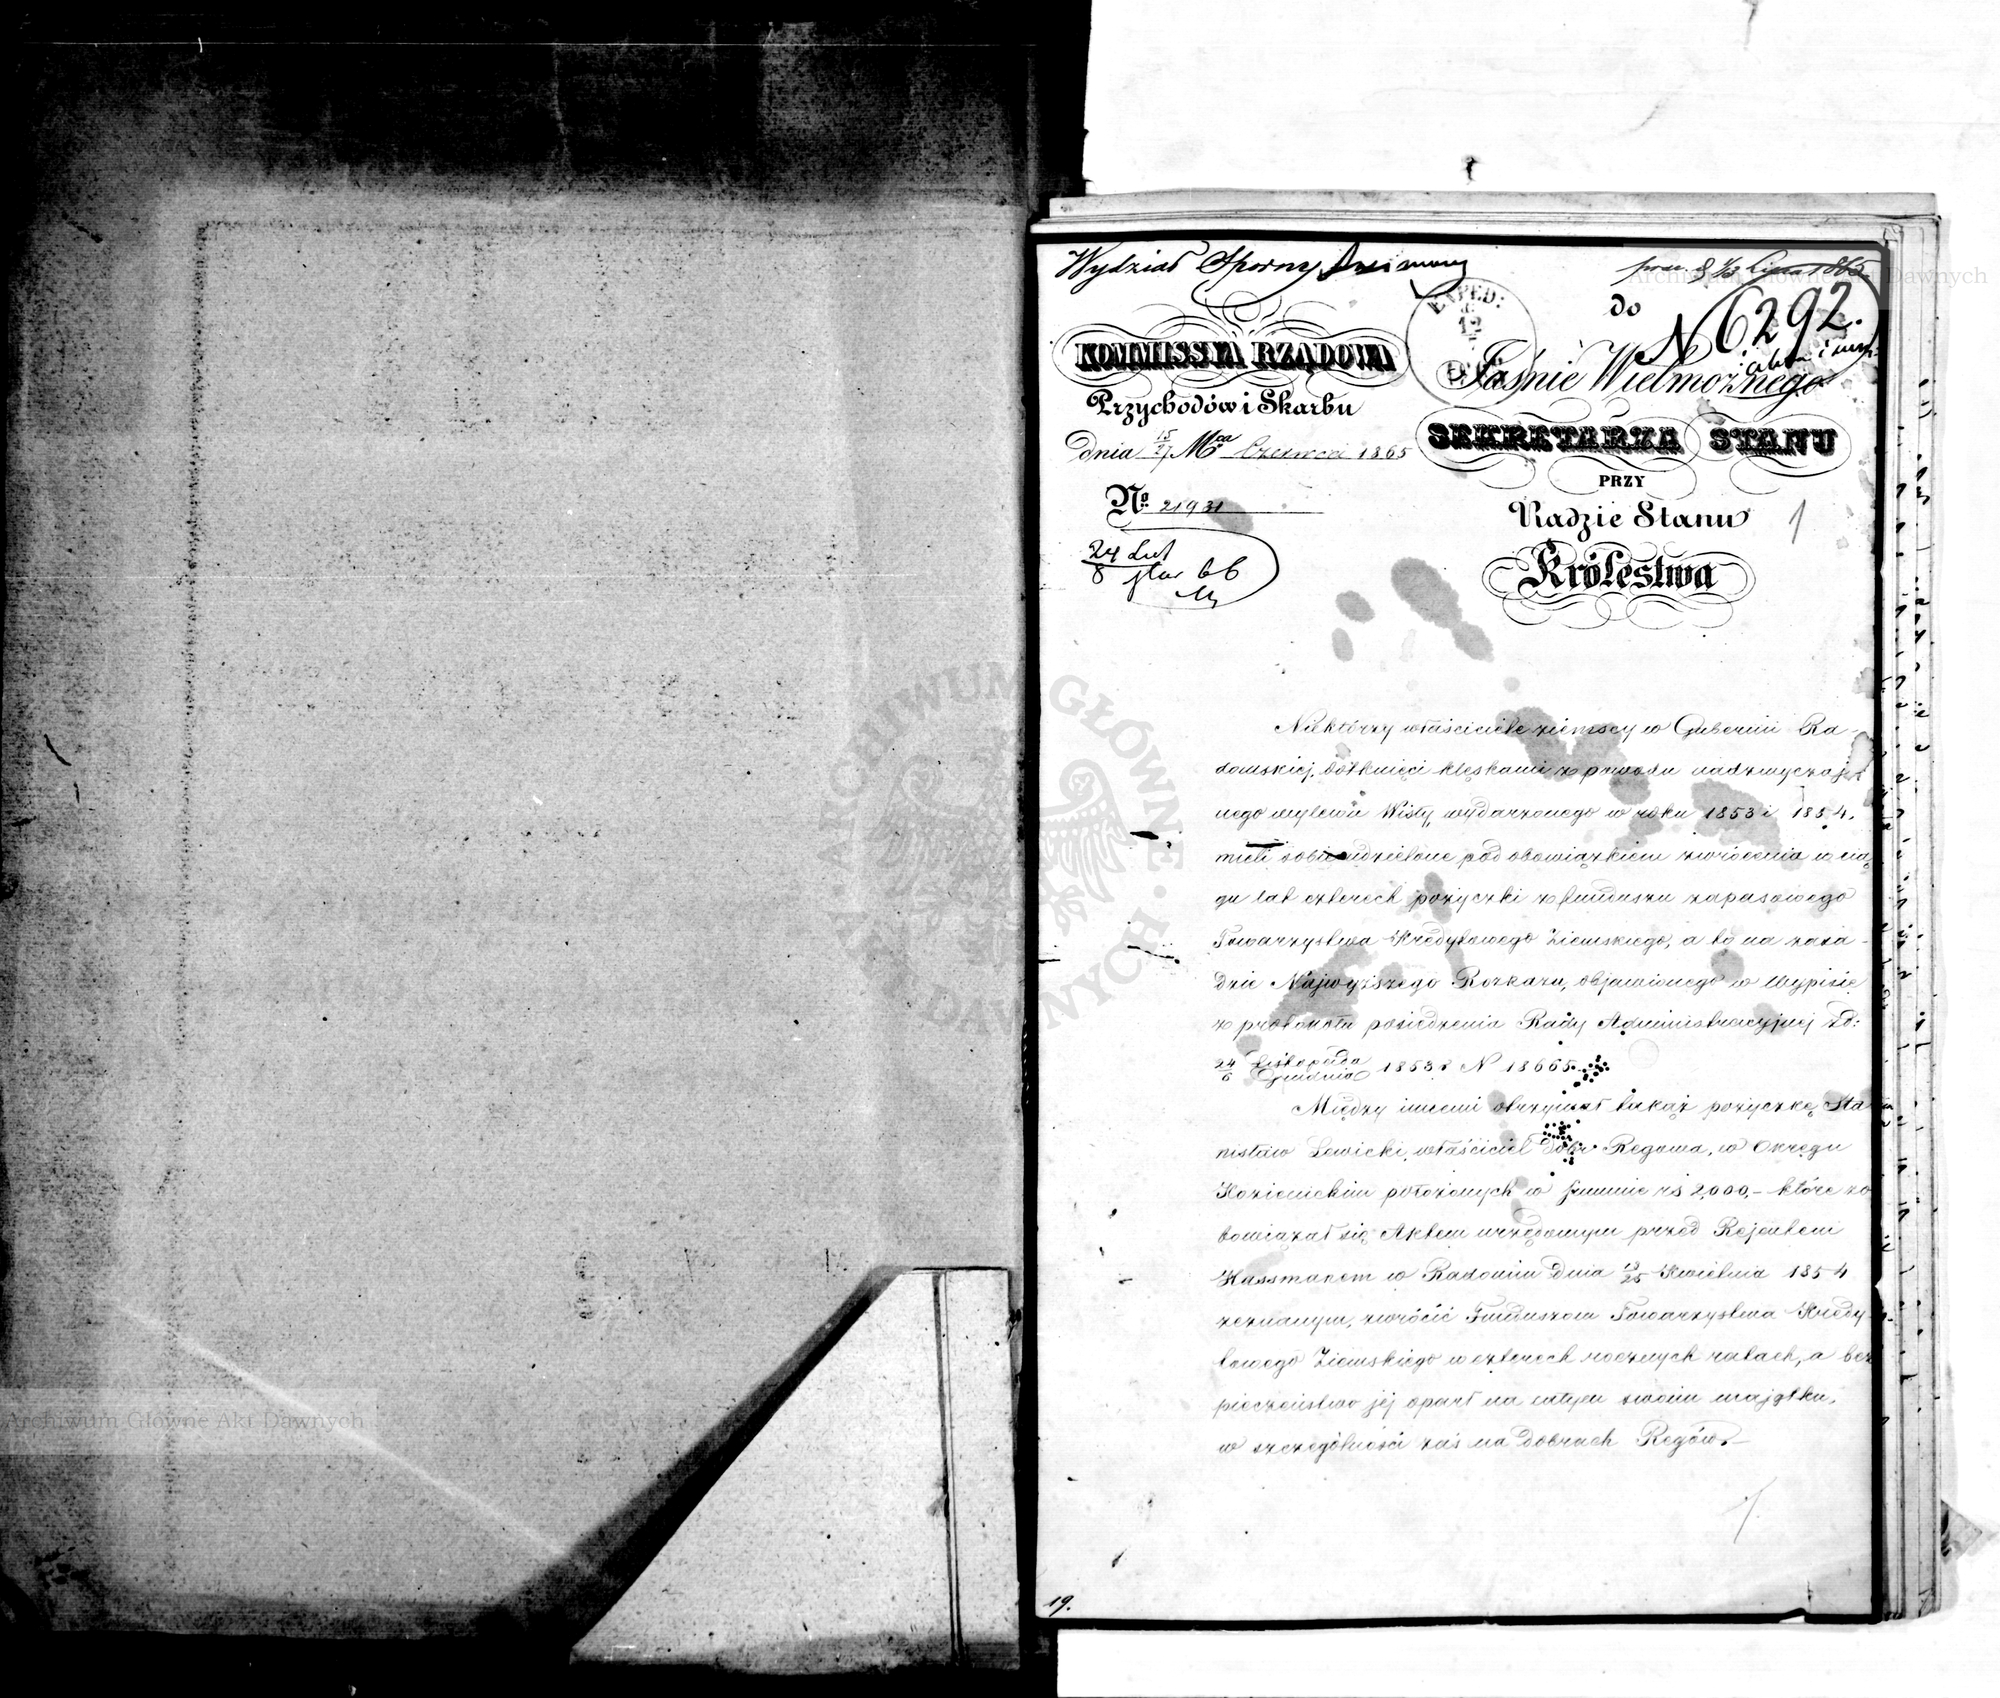 Wydział Sporny
KOMMISSYA RZĄDOWA
Przychodów i Skarbu
dnia 15/27 Mca Czerwca 1865
No. 21931
24 Lut
8 66
EXPED:
12
Lipca 1865
do
N 6292.
Jaśnie Wielmożnego
SEKRETARZA STANU
PRZY
Radzie Stanu
Królestwa
1
Niektórzy właściciele ziemscy w Gubernii Ra-
domskiej, dotknięci klęskami z powodu nadzwyczaj-
nego wylewu Wisły, wydarzonego w roku 1853 i 1854,
mieli sobie udzielone pod obowiązkiem zwrócenia w cią-
gu lat czterech pożyczki z funduszu zapasowego
Towarzystwa Kredytowego Ziemskiego, a to na zasa-
dzie Najwyższego Rozkazu, objawionego w Wypisie
z protokułu posiedzenia Rady Administracyjnej z d:
24/6 Listopada/Grudnia 1853 r N 18665.
Między innemi otrzymał takąż pożyczkę Sta
nisław Lewicki, właściciel Dóbr Regowa, w Okręgu
Kozienickim położonych w summie rs 2,000,- które zo
bowiązał się Aktem urzędowym przed Rejentem
Hassmanem w Radomiu dnia 13/25 Kwietnia 1854
zeznanym, zwrócić Funduszom Towarzystwa Kredy
towego Ziemskiego w czterech rocznych ratach, a bez
pieczeństwo jej oparł na całym swoim majątku,
w szczególności zaś na dobrach Regów.-
19.
Archiwum Główne Akt Dawnych
Archiwum Główne Akt Dawnych
ARCHIWUM GŁÓWNE AKT DAWNYCH